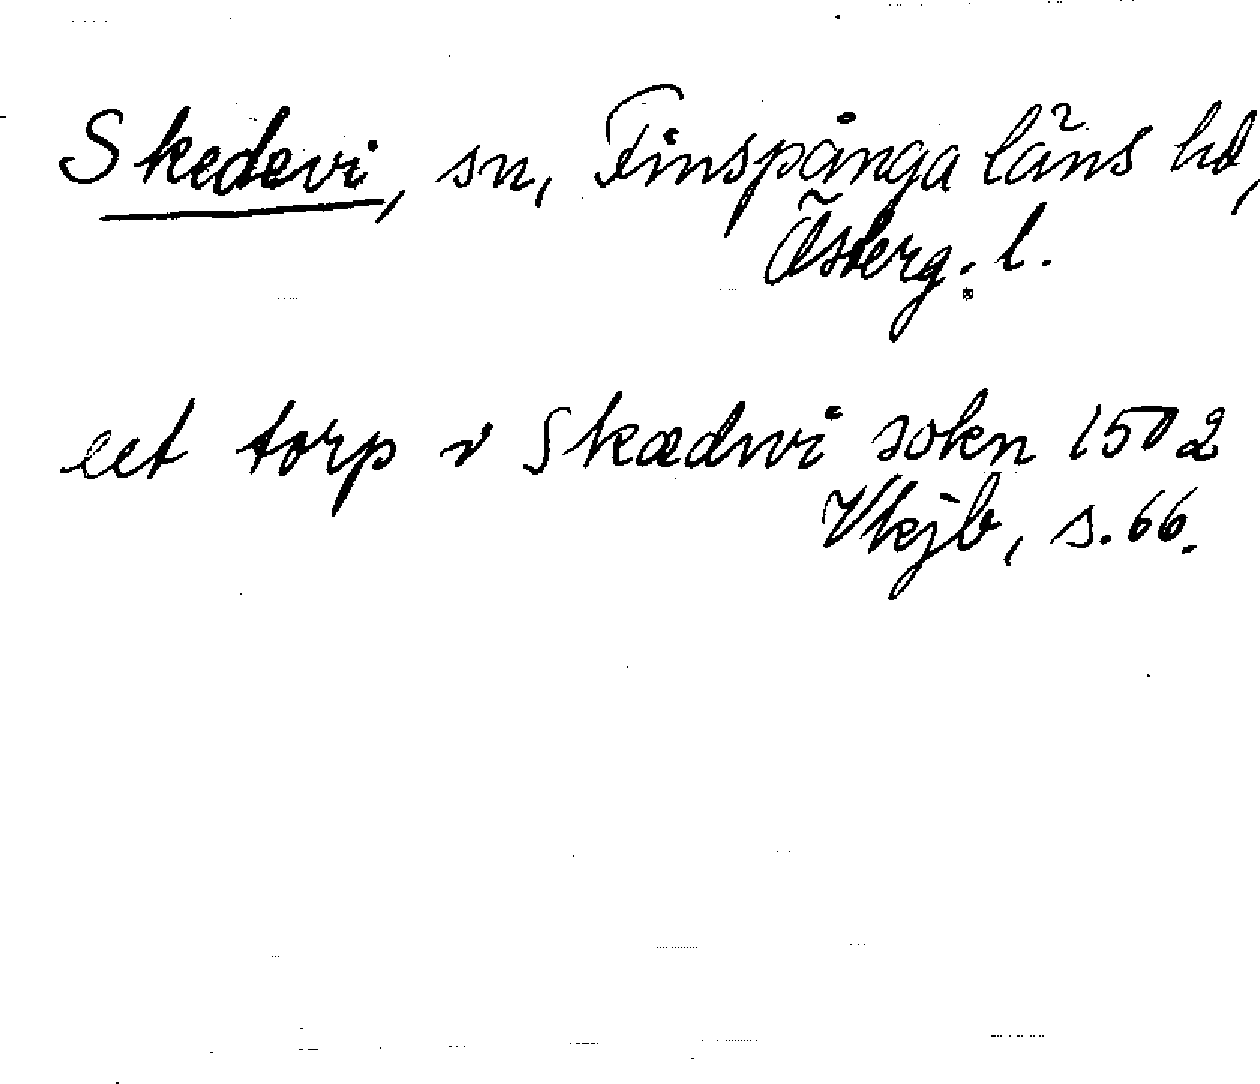 Skedevi, sn, Finspånga läns hd,
Österg. l.
eet torp v Skædwi sokn 1502
Vkjb, s. 66.